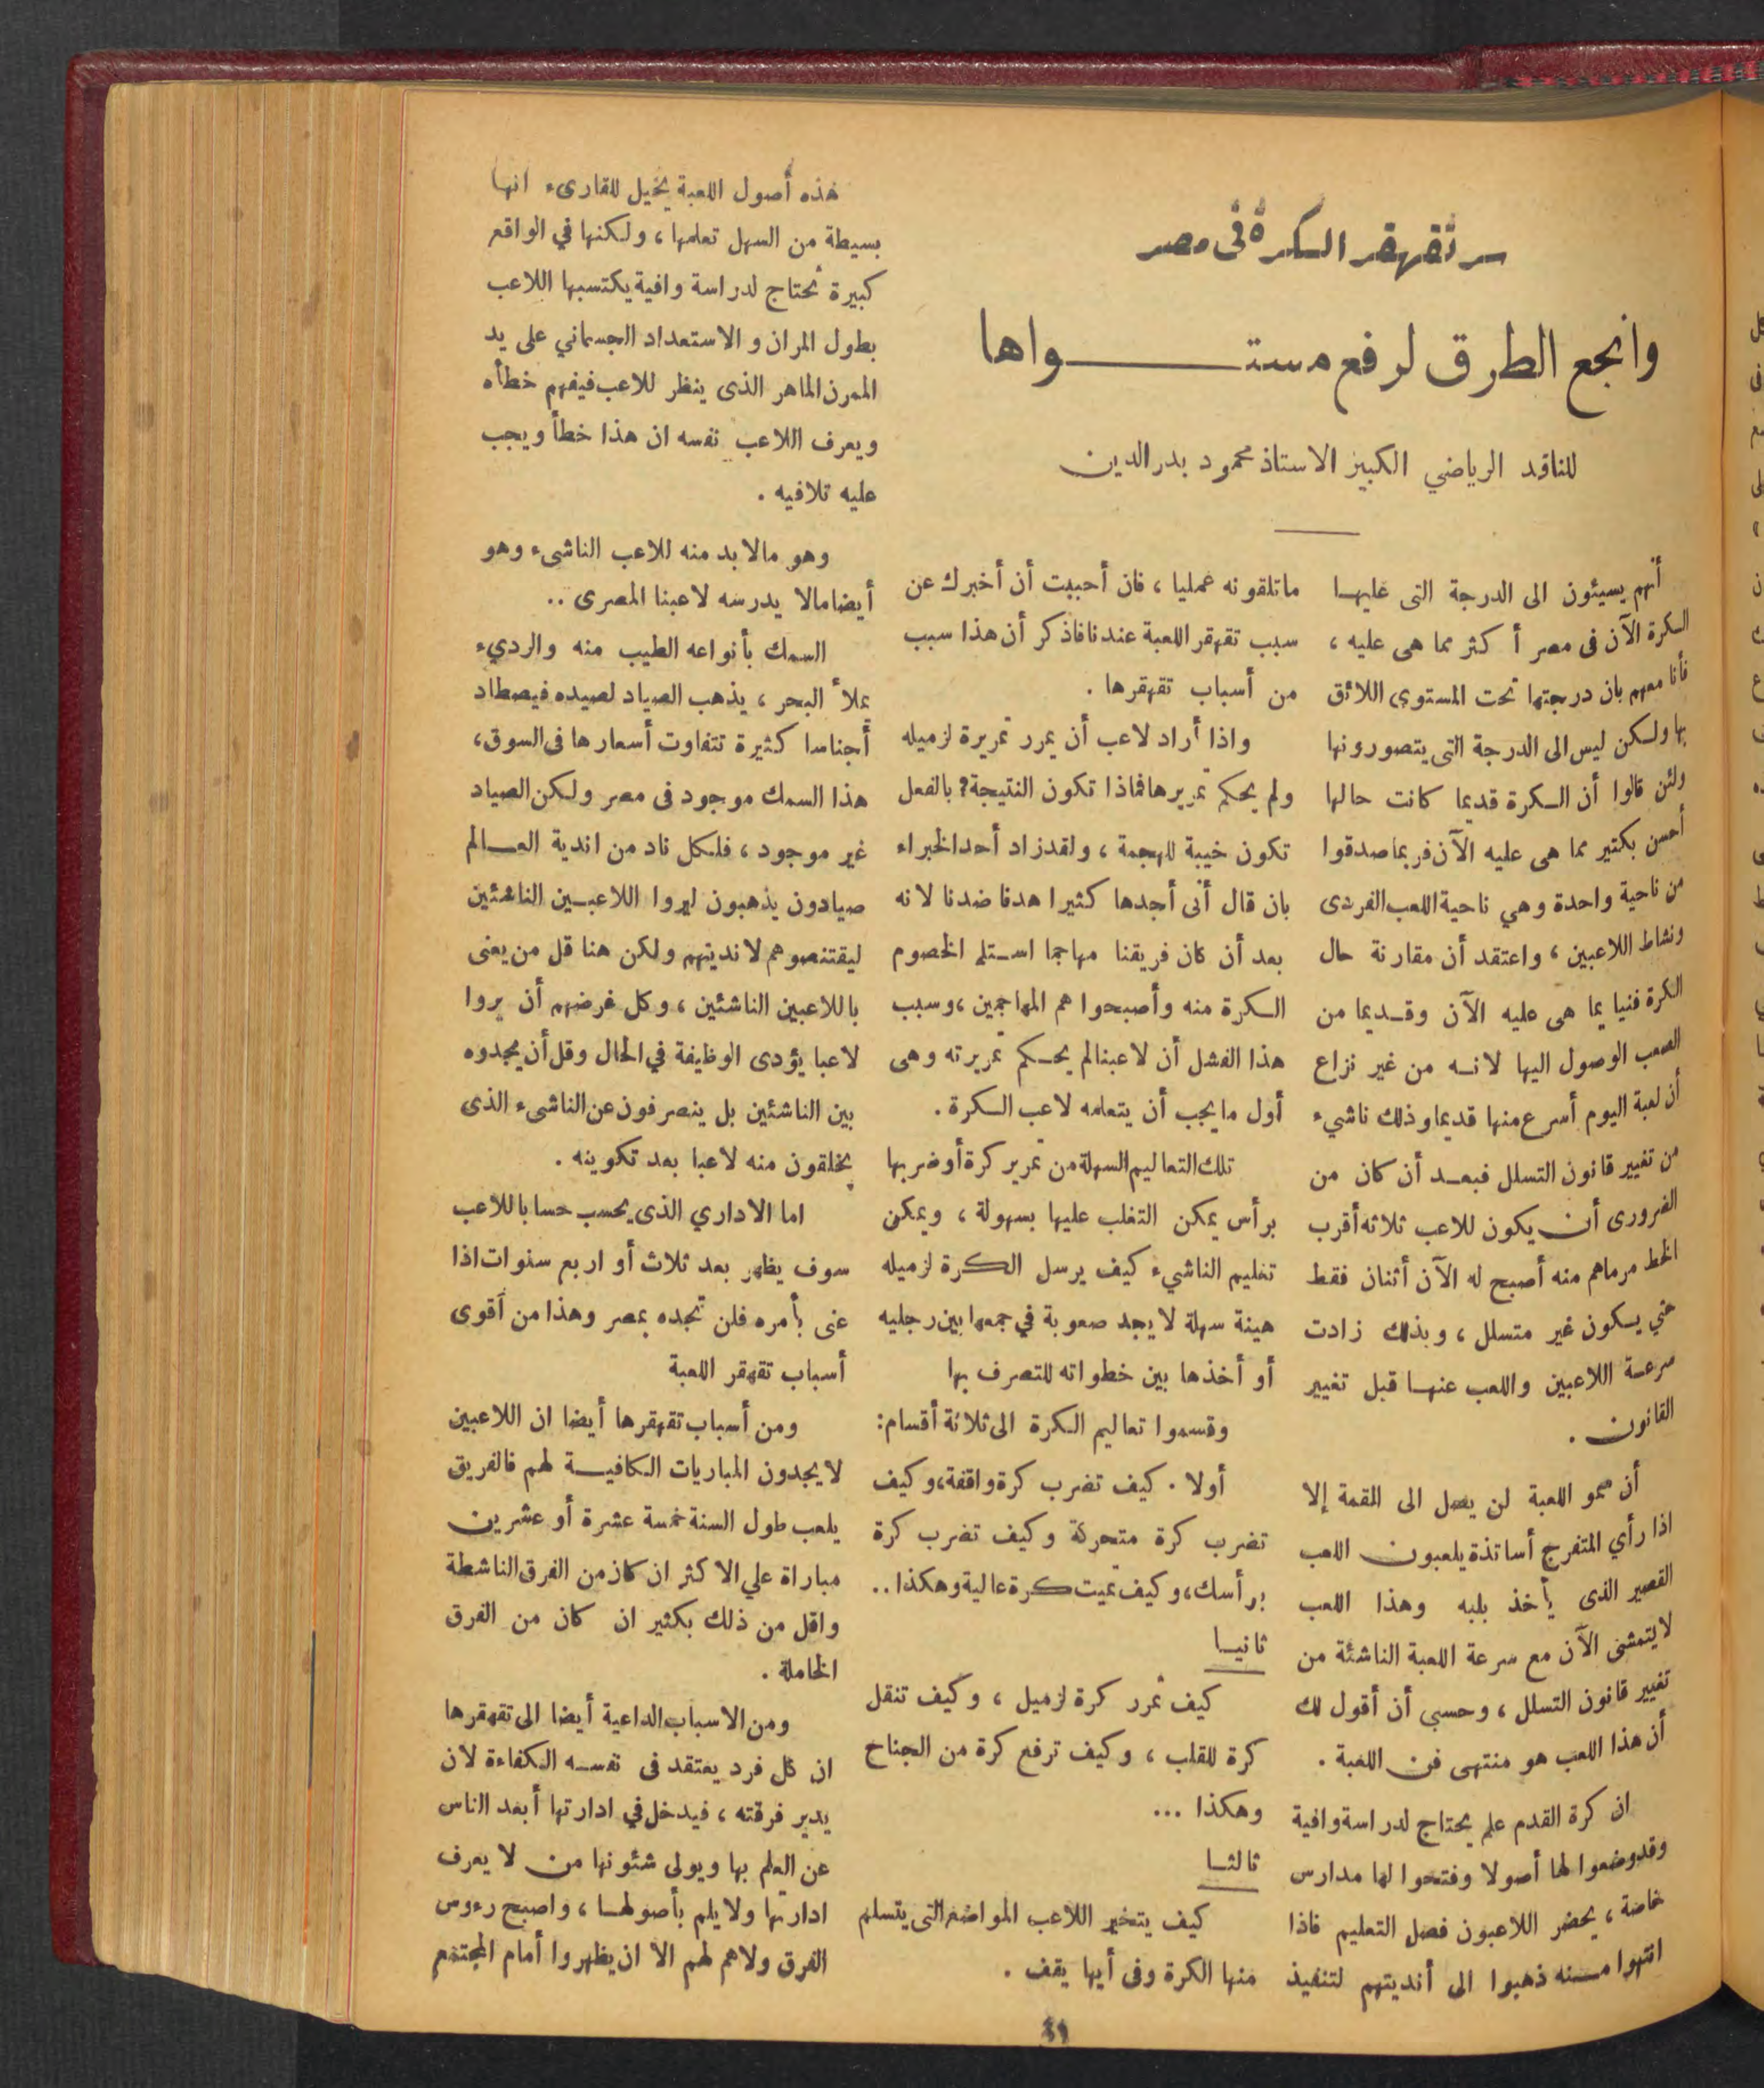 سر تقهقر الكرة فى مصر
وانجع الطرق لرفع مستواها
للناقد الرياضي الكبير الاستاذ محمود بدر الدين
أنهم يسيئون الى الدرجة التى عليها
الكرة الآن فى مصر أكثر مما هى عليه ،
فأنا معهم بان درجتها تحت المستوى اللائق
بها ولكن ليس الى الدرجة التى يتصورونها
ولئن قالوا أن الكرة قديما كانت حالها
أحسن بكثير مما هى عليه الآن فربما صدقوا
من ناحية واحدة وهي ناحية اللعب الفردى
ونشاط اللاعبين ، واعتقد أن مقارنة حال
الكرة فنيا بما هى عليه الآن وقديما من
الصعب الوصول اليها لانه من غير نزاع
أن لعبة اليوم أسرع منها قديما وذلك ناشيء
من تغيير قانون التسلل فبعد أن كان من
الضرورى أن يكون للاعب ثلاثه أقرب
الخط مرماهم منه أصبح له الآن أثنان فقط
حتي يكون غير متسلل ، وبذلك زادت
سرعة اللاعبين واللعب عنها قبل تغيير
القانون .
أن سمو اللعبة لن يصل الى القمة إلا
اذا رأي المتفرج أساتذة يلعبون اللعب
القصير الذى يأخذ بلبه وهذا اللعب
لا يتمشى الآن مع سرعة اللعبة الناشئة من
تغيير قانون التسلل ، وحسبي أن أقول لك
أن هذا اللعب هو منتهى فن اللعبة .
ان كرة القدم علم يحتاج لدراسة وافية
وقد وضعوا لها أصولا وفتحوا لها مدارس
خاصة ، يحضر اللاعبون فصل التعليم فاذا
انتهوا منه ذهبوا الى أنديتهم لتنفيذ
ماتلقونه عمليا ، فان أحببت أن أخبرك عن
سبب تقهقر اللعبة عندنا فاذكر أن هذا سبب
من أسباب تقهقرها .
واذا أراد لاعب أن يمرر تمريرة لزميله
ولم يحكم تمريرها فماذا تكون النتيجة ? بالفعل
تكون خيبة للهجمة ، ولقد زاد أحد الخبراء
بان قال أنى أجدها كثيرا هدفا ضدنا لانه
بعد أن كان فريقنا مهاجما استلم الخصوم
الكرة منه وأصبحوا هم المهاجمين ، وسبب
هذا الفشل أن لاعبنالم يحكم تمريرته وهى
أول ما يجب أن يتعلمه لاعب الكرة .
تلك التعاليم السهلة من تمرير كرة أو ضربها
برأس يمكن التغلب عليها بسهولة ، ويمكن
تعليم الناشيء كيف يرسل الكرة لزميله
هينة سهلة لا يجد صعوبة في جمعها بين رجليه
أو أخذها بين خطواته للتصرف بها
وقسموا تعاليم الكرة الى ثلاثة أقسام :
أولا . كيف تضرب كرة واقفة ، وكيف
تضرب كرة متحركة وكيف تضرب كرة
برأسك ، وكيف تميت كرة عالية وهكذا ..
ثانيا
كيف تمرر كرة لزميل ، وكيف تنقل
كرة للقلب ، وكيف ترفع كرة من الجناح
وهكذا ...
ثالثا
كيف يتخير اللاعب المواضع التى يتسلم
منها الكرة وفى أيها يقف .
هذه أصول اللعبة يخيل للقارىء انها
بسيطة من السهل تعلمها ، ولكنها في الواقع
كبيرة تحتاج لدراسة وافية يكتسبها اللاعب
بطول المران والاستعداد الجسماني على يد
الممرن الماهر الذى ينظر للاعب فيفهم خطأه
ويعرف اللاعب نفسه ان هذا خطأ ويجب
عليه تلافيه .
وهو مالا بد منه للاعب الناشىء وهو
أيضا مالا يدرسه لاعبنا المصرى ..
السمك بأنواعه الطيب منه والرديء
يملأ البحر ، يذهب الصياد لصيده فيصطاد
أجناسا كثيرة تتفاوت أسعارها فى السوق ،
هذا السمك موجود فى مصر ولكن الصياد
غير موجود ، فلكل ناد من اندية العالم
صيادون يذهبون ليروا اللاعبين الناشئين
ليقتنصوهم لانديتهم ولكن هنا قل من يعنى
باللاعبين الناشئين ، وكل غرضهم أن يروا
لاعبا يؤدى الوظيفة في الحال وقل أن يجدوه
بين الناشئين بل ينصرفون عن الناشىء الذى
يخلقون منه لاعبا بعد تكوينه .
اما الاداري الذى يحسب حسابا للاعب
سوف يظهر بعد ثلاث أو اربع سنوات اذا
عنى بأمره فلن تجده بمصر وهذا من أقوى
أسباب تقهقر اللعبة
ومن أسباب تقهقرها أيضا ان اللاعبين
لا يجدون المباريات الكافية لهم فالفريق
يلعب طول السنة خمسة عشرة أو عشرين
مباراة علي الاكثر ان كان من الفرق الناشطة
واقل من ذلك بكثير ان كان من الفرق
الخاملة .
ومن الاسباب الداعية أيضا الى تقهقرها
ان كل فرد يعتقد فى نفسه الكفاءة لان
يدير فرقته ، فيدخل في ادارتها أبعد الناس
عن العلم بها ويولى شئونها من لا يعرف
ادارتها ولا يلم بأصولها ، واصبح رءوس
الفرق ولاهم لهم الا ان يظهروا أمام المجتمع